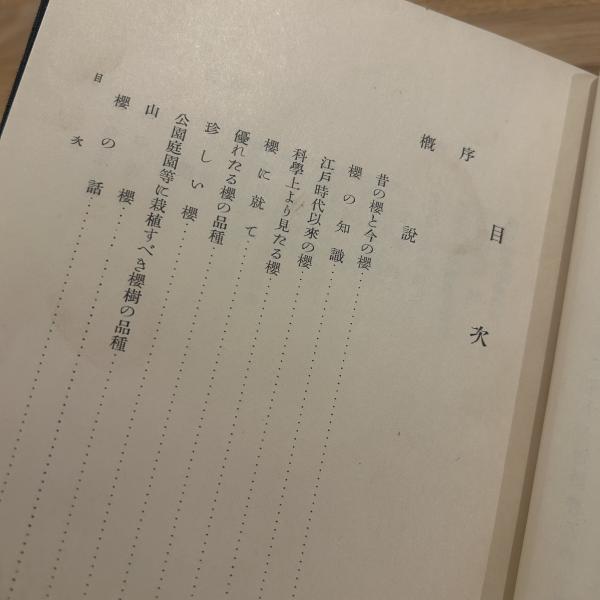 目次
序
概説
昔の櫻と今の櫻
櫻の知識
江戸時代以來の櫻
科學上より見たる櫻
櫻に就て
優れたる櫻の品種
珍しい櫻
公園庭園等に栽植すべき櫻樹の品種
山櫻
櫻の話
目次